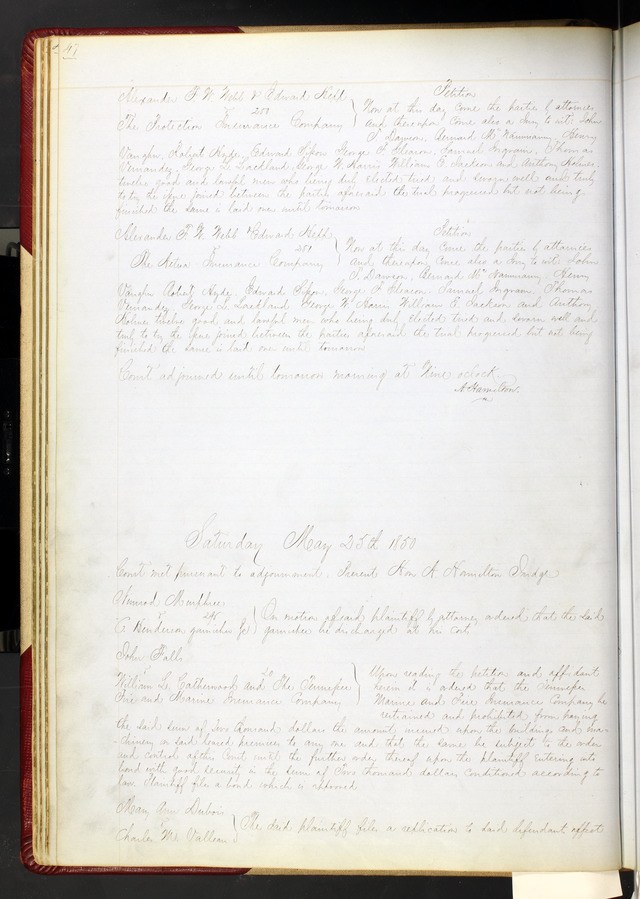 Alexander F. W. Webb & Edward Kidd Petition
250
The Protection Insurance Company Now at this day come the parties by attorneys
and thereupon come also a Jury to wit: John
T. Dawson, Bernard Mc Nammany, Henry
Vaughn, Robert Hyde, Edward George S. Gleason, Samuel Ingram, Thomas
George L. Lackland, George W. Harris, William E. Jackson and Anthony Holmes
twelve good and lawful men who being duly Elected tried and Sworn well and truly
to try the issue joined between the parties aforesaid the trial progressed but not being
finished the same is laid over until tomorrow
Alexander F. W. Webb & Edward Kidd Petition
251
The Aetna Insurance Company Now at this day Come the parties by attorneys
And thereupon Come also a Jury to wit: John
T. Dawson, Bernard Mc Nammany, Henry
Vaughn Robert Hyde, Edward George S Gleason, Samuel Ingram, Thomas
George L. Lackland, George W. Harris William E. Jackson and Anthony
Holmes twelve good and lawful men who being duly Elected tried and sworn well and
truly to try the issue joined between the parties aforesaid the trial progressed but not being
finished the same is laid over until tomorrow
Court adjourned until tomorrow morning at Nine oclock
A Hamilton
Saturday May 25th 1850
Court met pursuant to adjournment. Present Hon A. Hamilton Judge
Nimrod
C. Henderson garnishee On motion of said plaintiff by attorney ordered that the said
garnishee be discharged at his Cost
John Falls
William L. Catherwood and The Tennessee
Fire and Marine Insurance Company Upon reading the petition and affidavit
herein it is ordered that the Tennessee
Marine and Fire Insurance Company be
restrained and prohibited from paying
the said sum of Two thousand dollars the amount insured upon the buildings and ma-
chinery on said leased premises to any one and that the same be subject to the order
and control of this Court until the further order thereof upon the plaintiff entering into
bond with good security in the sum of Two thousand dollars conditioned according to
law Plaintiff files a bond which is approved
Mary Ann Dubois
Charles M. Valleau The said plaintiff files a replication to said defendant